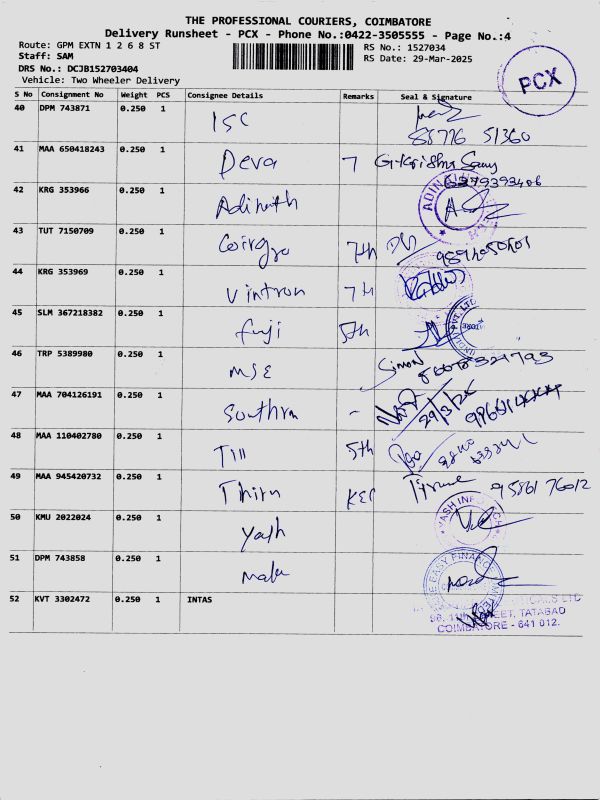 THE PROFESSIONAL COURIERS, COIMBATORE
Delivery Runsheet - PCX - Phone No.:0422-3505555 - Page No.:4
Route: GPM EXTN 1 2 6 8 ST
RS No.: 1527034
Staff: SAM
RS Date: 29-Mar-2025
DRS No.: DCJB152703404
Vehicle: Two Wheeler Delivery
PCX
S No Consignment No Weight PCS Consignee Details Remarks Seal & Signature
40 DPM 743871 0.250 1 ISC
88776 51360
41 MAA 650418243 0.250 1 Deva 7
42 KRG 353966 0.250 1 Adinath
43 TUT 7150709 0.250 1 7th
44 KRG 353969 0.250 1 Vintron 7th
45 SLM 367218382 0.250 1 fuji 5th
46 TRP 5389980 0.250 1 MSE Simon
47 MAA 704126191 0.250 1 Southrn - 29/3/25
48 MAA 110402780 0.250 1 Till 5th
49 MAA 945420732 0.250 1 Thiru KEC 95861 76012
50 KMU 2022024 0.250 1 Yash
51 DPM 743858 0.250 1
52 KVT 3302472 0.250 1 INTAS
STREET, TATABAD
COIMBATORE - 641 012.